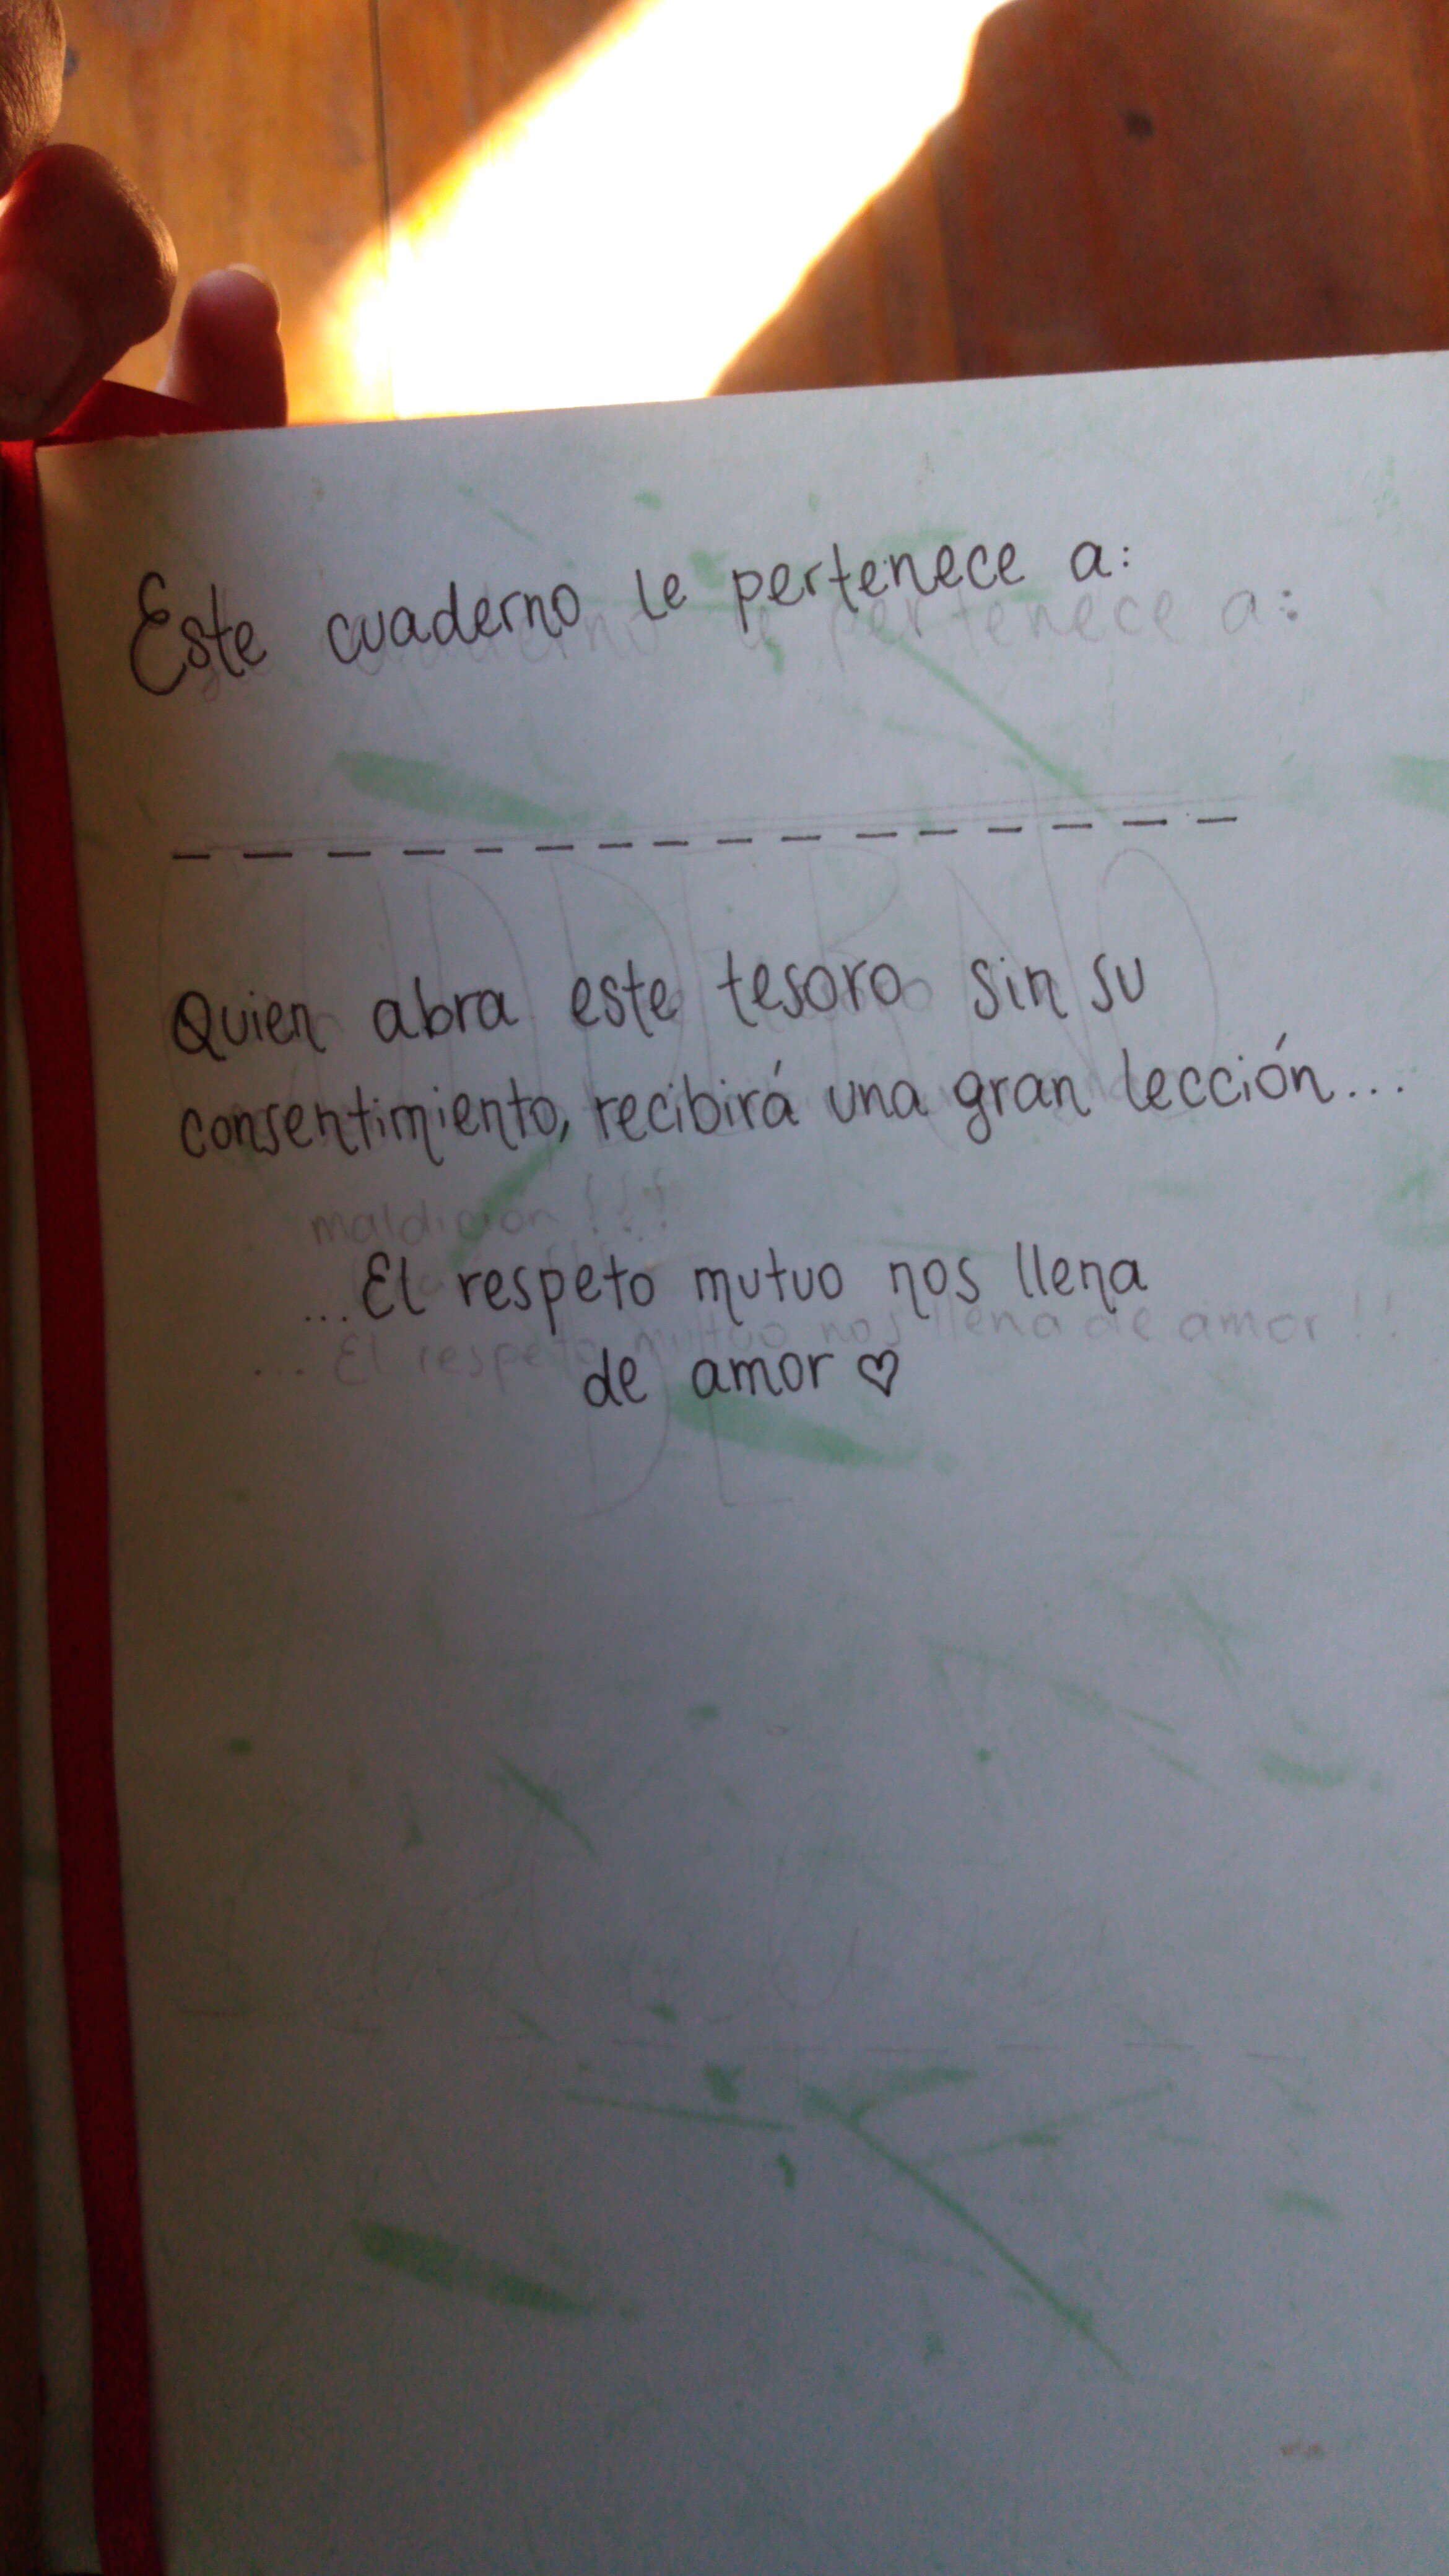 Este cuaderno le pertenece a:
pertenece a:
_ _ _ _ _ _ _ _ _ _ _ _ _ _ _
CUADERNO
Quien abra este tesoro sin su
consentimiento, recibirá una gran lección...
maldición !!!
...El respeto mutuo nos llena
... El respeto mutuo nos llena de amor !!
de amor ♡
DE